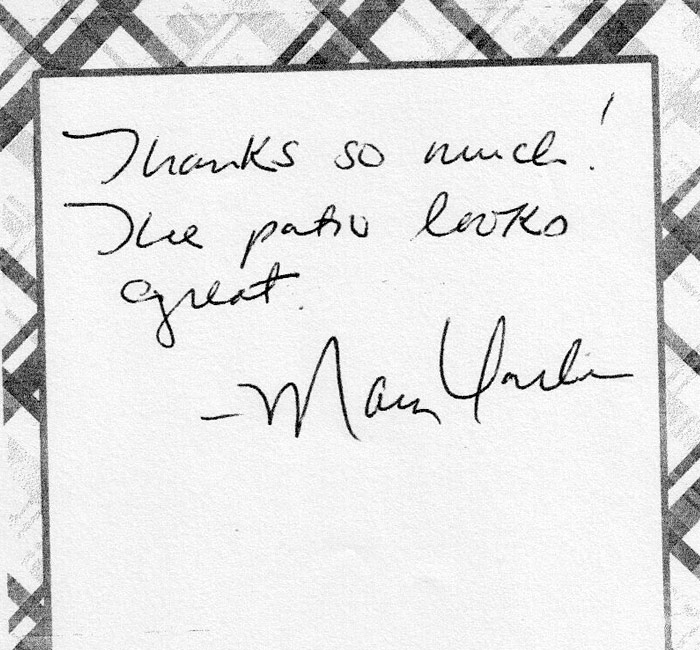 Thanks so much!
The patio looks
great.